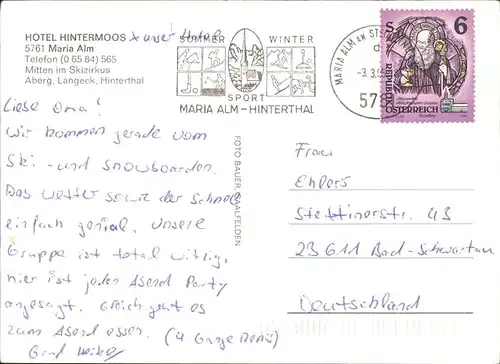 HOTEL HINTERMOOS x unser Hotel
5761 Maria Alm
Telefon (0 65 84) 565
Mitten im Skizirkus
Aberg, Langeck, Hinterthal
SOMMER WINTER
SPORT
MARIA ALM – HINTERTHAL
MARIA ALM AM
3.3.
57
6
REPUBLIK
ÖSTERREICH
Liebe Oma!
Wir kommen gerade vom
Ski - und Snowboarden.
Das Wetter sowie der Schnee
einfach genial. Unsere
Gruppe ist total witzig,
hier ist jeden Abend Party
angesagt. Gleich geht es
zum Abend essen. (4 Gänge Menü)
Gruß Heike
FOTO BAUER, SAALFELDEN
Frau
Ehlers
Stettinerstr. 43
23611 Bad-Schwartau
Deutschland